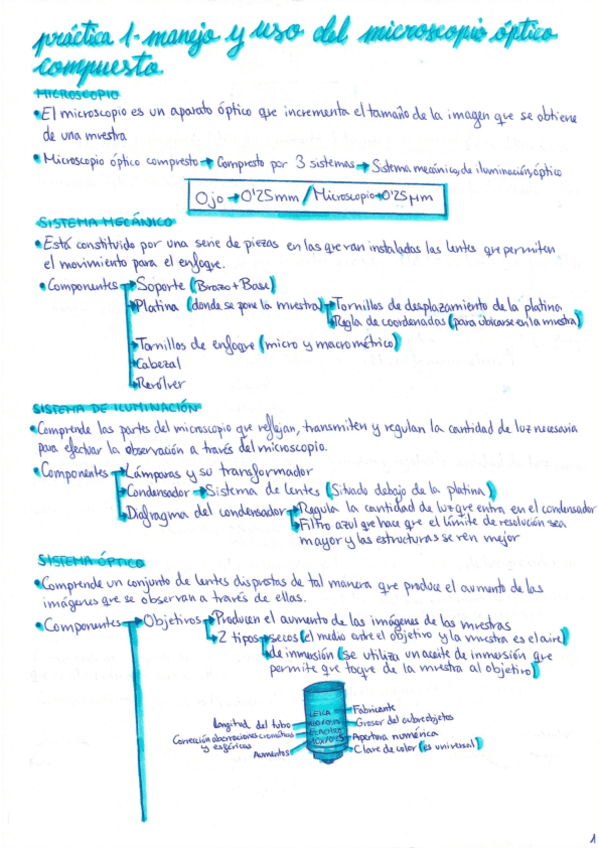 práctica 1- manejo y uso del microscopio óptico
compuesto
MICROSCOPIO
• El microscopio es un aparato óptico que incrementa el tamaño de la imagen que se obtiene
de una muestra
• Microscopio óptico compuesto → Compuesto por 3 sistemas → Sistema mecánico, de iluminación, óptico
Ojo → 0'25mm / Microscopio → 0'25µm
SISTEMA MECÁNICO
• Está constituido por una serie de piezas en las que van instaladas las lentes que permiten
el movimiento para el enfoque.
• Componentes → Soporte (Brazo + Base)
→ Platina (donde se pone la muestra) → Tornillos de desplazamiento de la platina
→ Regla de coordenadas (para ubicarse en la muestra)
→ Tornillos de enfoque (micro y macrométrico)
→ Cabezal
→ Revólver
SISTEMA DE ILUMINACIÓN
• Comprende las partes del microscopio que reflejan, transmiten y regulan la cantidad de luz necesaria
para efectuar la observación a través del microscopio.
• Componentes → Lámparas y su transformador
→ Condensador → Sistema de lentes (Situado debajo de la platina)
→ Diafragma del condensador → Regula la cantidad de luz que entra en el condensador
→ Filtro azul que hace que el límite de resolución sea
mayor y las estructuras se ven mejor
SISTEMA ÓPTICO
• Comprende un conjunto de lentes dispuestas de tal manera que produce el aumento de las
imágenes que se observan a través de ellas.
• Componentes → Objetivos → Producen el aumento de las imágenes de las muestras
→ 2 tipos → secos (el medio entre el objetivo y la muestra es el aire)
→ de inmersión (se utiliza un aceite de inmersión que
permite que toque de la muestra al objetivo)
LEICA
Fabricante
Longitud del tubo
Grosor del cubreobjetos
Corrección aberraciones cromáticas
y esféricas
Apertura numérica
Aumentos
Clave de color (es universal)
1